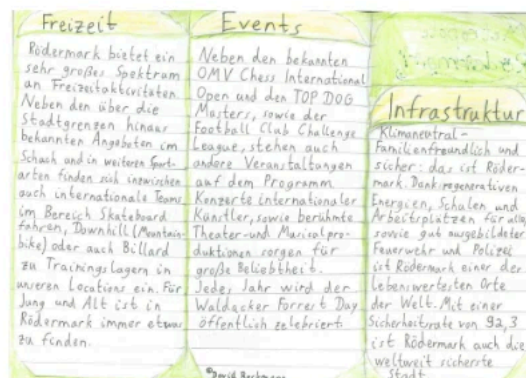 Freizeit
Rödermark bietet ein
sehr großes Spektrum
an Freizeitaktivitäten
Neben den über die
Stadtgrenzen hinaus
bekannten Angeboten im
Schach und in weiteren Sport-
arten finden sich inzwischen
auch internationale Teams
im Bereich Skateboard
fahren, Downhill (Mountain-
bike) oder auch Billard
zu Trainingslagern in
unseren Locations ein. Für
Jung und Alt ist in
Rödermark immer etwas
zu finden.
Events
Neben den bekannten
OMV Chess International
Open und den TOP DOG
Masters, sowie der
Football Club Challenge
League, stehen auch
andere Veranstaltungen
auf dem Programm
Konzerte internationaler
Künstler, sowie berühmte
Theater- und Musicalpro-
duktionen sorgen für
große Beliebtheit.
Jedes Jahr wird der
Waldacker Forrest Day
öffentlich zelebriert
Infrastruktur
Klimaneutral-
Familienfreundlich und
sicher: das ist Röder-
mark. Dank regenerativen
Energien, Schulen und
Arbeitsplätzen für alle
sowie gut ausgebildeter
Feuerwehr und Polizei
ist Rödermark einer der
lebenswertesten Orte
der Welt. Mit einer
Sicherheitsrate von 92,3
ist Rödermark auch die
weltweit sicherste
Stadt